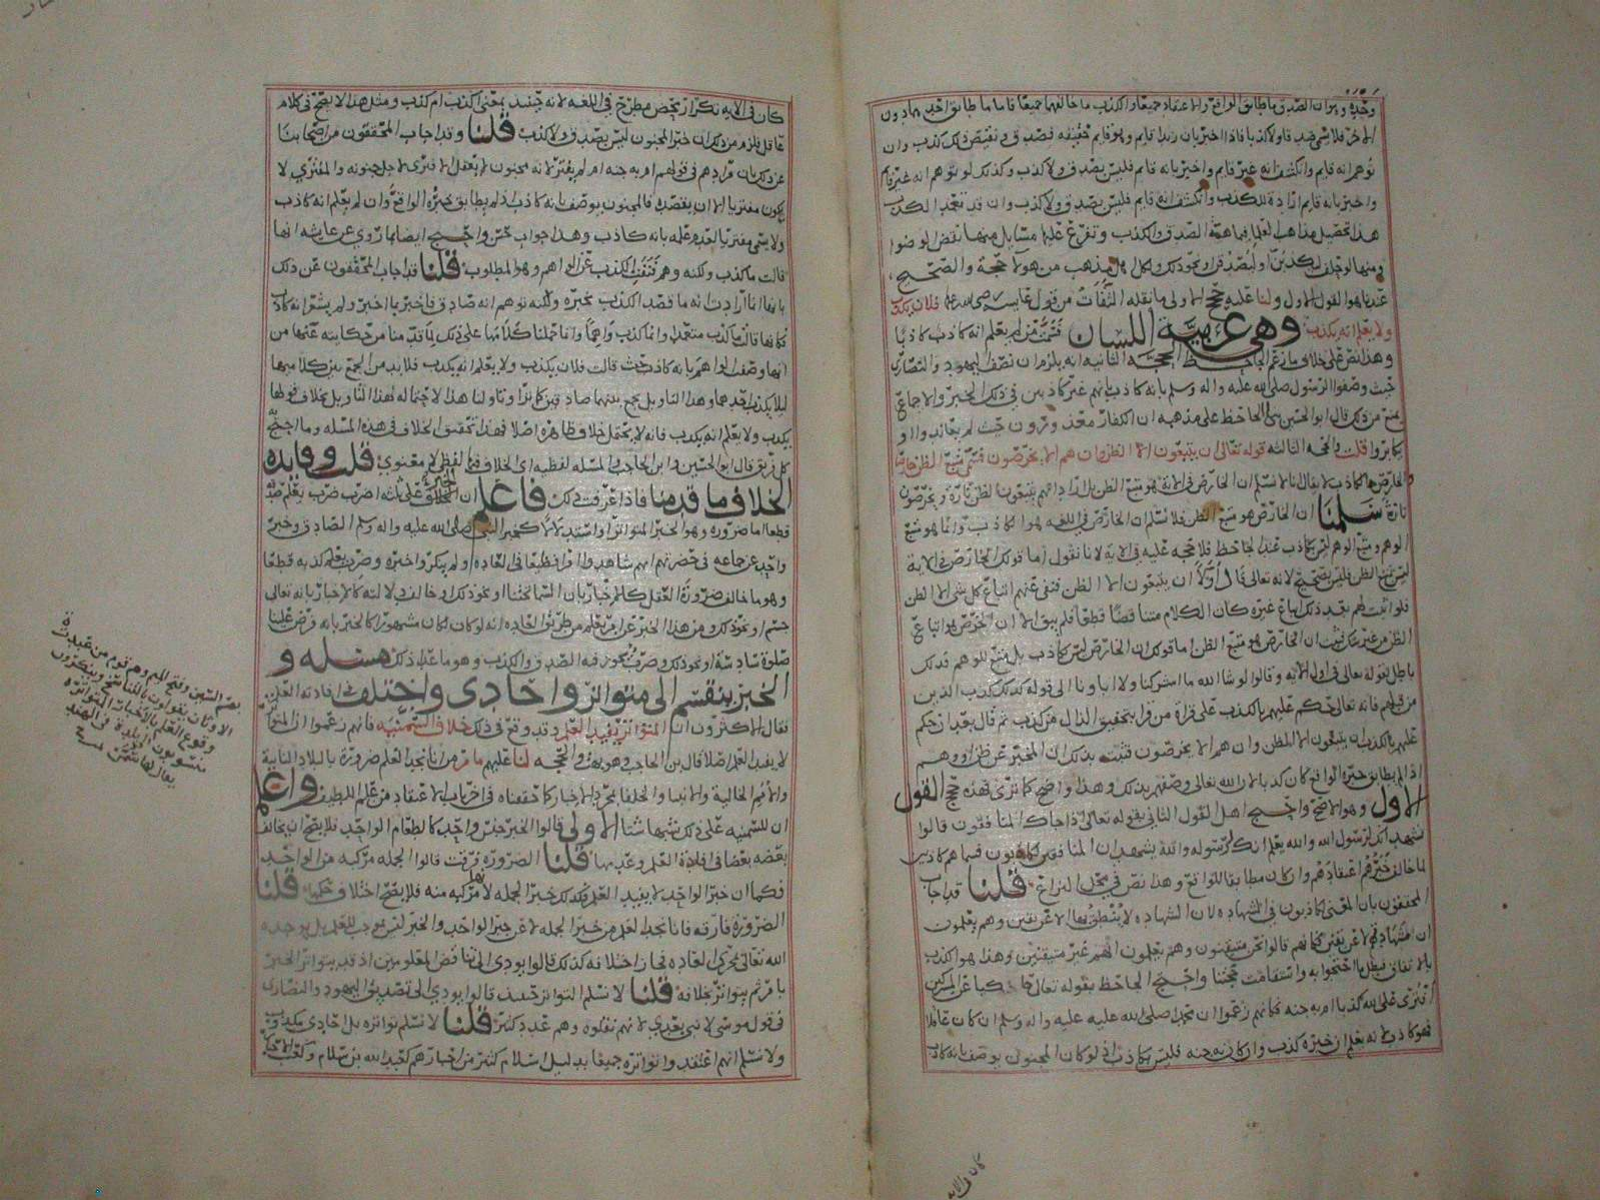 وحده وقيل ان الصدق ما طابق الواقع والاعتقاد جميعا والكذب ما خالفهما جميعا فاما ما طابق احدهما دون
الاخر فلا صدقا ولا كذبا فاذا اخبر بان زيدا قايم وهو قايم حقيقه فصدق ونقيض ذلك كذب وان
توهم انه قايم وانكشف انه غير قايم واخبر بانه قايم فليس بصدق ولا كذب وكذلك لو توهم انه غير قايم
واخبر بانه قايم ارادة للكذب وانكشف انه قايم فليس بصدق ولا كذب وان قد تعمد الكذب
هذا تحصيل مذاهب العلما في ماهية الصدق والكذب وتفرع عليها مسايل منها
ومنها لو حلف ليكذبن او ليصدقن ونحو ذلك ولكل اهل مذهب من هولا حجة والصحيح
عندنا هو القول الاول ولنا عليه حجج الاولى ما نقله الثقات من قول عايشه رضي الله عنها فلان يكذب
ولا يعلم انه يكذب وهي عربية اللسان فسمت من لم يعلم انه كاذب كاذبا
وهذا نص على خلاف ما زعم الجاحظ الحجة الثانيه انه يلزم ان نصف اليهود والنصارى
حيث وصفوا الرسول صلى الله عليه واله وسلم بانه كاذب بانهم غير كاذبين في ذلك الخبر والاجماع
يمنع من ذلك قال ابو الحسين بنى الجاحظ على مذهبه ان الكفار معذورون حيث لم يعاندوا او
يكابروا قلت الحجه الثالثه قوله تعالى ان يتبعون الا الظن وان هم الا يخرصون فسمى متبع الظن خارصا
والخارص هو الكاذب لا يقال انا لا نسلم ان الخارص في الاية هو متبع الظن بل اراد انهم يتبعون الظن تارة ويخرصون
تارة سلمنا ان الخارص هو متبع الظن فلا نسلم ان الخارص في اللغه هو الكاذب وانما هو متبع
الوهم ومتبع الوهم ليس بكاذب عند الجاحظ فلا حجه عليه في الاية لانا نقول اما قولك الخارص في الاية
ليس متبع الظن فليس بصحيح لانه تعالى قال اولا ان يتبعون الا الظن فنفى عنهم اتباع كل شي الا الظن
فلو اثبت لهم بعد ذلك اتباع غيره كان الكلام متناقضا قطعا فلم يبق الا ان الخرص هو اتباع
الظن من غير شك فثبت ان الخارص هو متبع الظن واما قولك ان الخارص ليس كاذب بل متبع للوهم فذلك
باطل لقوله تعالى في اول الاية وقالوا لو شا الله ما اشركنا ولا اباونا الى قوله كذلك كذب الذين
من قبلهم فانه تعالى حكم عليهم بالكذب على قراة من قرا بتخفيف الذال من كذب ثم قال بعد ان حكم
عليهم بالكذب ان يتبعون الا الظن وان هم الا يخرصون فثبت بذلك ان المخبر عن ظن او وهم
اذا لم يطابق خبره الواقع كان كذبا لان الله تعالى وصفهم بذلك وهذا واضح كما ترى فهذه حجج القول
الاول وهو الاصح واحتج اهل القول الثاني بقوله تعالى اذا جاك المنافقون قالوا
نشهد انك لرسول الله والله يعلم انك لرسوله والله يشهد ان المنافقين لكاذبون فسماهم كاذبين
لما خالف خبرهم اعتقادهم وان كان مطابقا للواقع وهذا نص في محل النزاع قلنا قد اجاب
المحققون بان المعنى لكاذبون في الشهاده لان الشهاده لا ينطق بها الا عن يقين وهم يعلمون
ان شهادتهم لا عن يقين فكانهم قالوا نحن متيقنون وهم يعلمون انهم غير متيقنين وهذا هو الكذب
بالاتفاق فبطل ما احتجوا به واستقامت حجتنا واحتج الجاحظ بقوله تعالى حاكيا عن المشركين
افترى على الله كذبا ام به جنه فكانهم زعموا ان محمدا صلى الله عليه واله وسلم ان كان عاقلا
فهو كاذب لانه يعلم ان خبره كذب وان كان به جنه فليس بكاذب اذ لو كان المجنون يوصف بانه كاذب
كان في الايه
كان في الايه تكرار محض مطرح في اللغه لانه حينيذ بمعنى اكذب ام كذب ومثل هذا لا يصح في كلام
عاقل فلزم من ذلك ان خبر المجنون ليس بصدق ولا كذب قلنا وقد اجاب المحققون من اصحابنا
عن ذلك بان مرادهم في قولهم ام به جنه ام لم يفتر لانه مجنون لم يفعل الافترى لاجل جنونه والمفتري لا
يكون مفتريا الا ان يقصد فالمجنون يوصف بانه كاذب اذا لم يطابق خبره الواقع وان لم يعلم انه كاذب
ولا يسمى مفتريا لعدم علمه بانه كاذب وهذا جواب حسن واحتج ايضا بما روي عن عايشه انها
قالت ما كذب ولكنه وهم فنفت الكذب عن الواهم وهو المطلوب قلنا قد اجاب المحققون عن ذلك
بانها انما ارادت انه ما قصد الكذب بخبره ولكنه توهم انه صادق فاخبر بما اخبر ولم يشعر انه كاذب
فكانها قالت ما كذب متعمدا وانما كذب واهما وانما حملنا كلامها على ذلك لما قدمنا من حكايته عنها من
انها وصفت الواهم بانه كاذب حيث قالت فلان يكذب ولا يعلم انه يكذب فلا بد من الجمع بين كلاميها
ليلا يكذب احدهما وهذا التاويل يجمع بينهما صادقين كما ترى وتاولنا هذا لاحتماله لهذا التاويل بخلاف قولها
يكذب ولا يعلم انه يكذب فانه لا يحتمل خلاف ظاهره اصلا فهذا تحقيق الخلاف في هذه المسله وما احتج به
كل فريق قال ابو الحسين وابن الحاجب والمسله لفظيه اي الخلاف فيها لفظي لا معنوي قلت وفايده
الخلاف ما قدمنا فاذا عرفت ذلك فاعلم ان الخبر على ثلثه اضرب ضرب يعلم صدقه
قطعا اما ضروره وهو الخبر المتواتر او استدلالا كخبر النبي صلى الله عليه واله وسلم الصادق وخبر
واحد عن جماعه في حضرتهم انهم شاهدوا امرا فظيعا في العاده ولم ينكروا خبره وضرب يعلم كذبه قطعا
وهو ما خالف ضرورة العقل كالاخبار بان السما تحتنا ونحو ذلك او خالف دلالته كالاخبار بانه تعالى
جسم او نحو ذلك ومن هذا الخبر عن امر يعلم من طريق العاده انه لو كان لكان مشهورا كالخبر بانه فرض علينا
صلوة سادسة او نحو ذلك وضرب يجوز فيه الصدق والكذب وهو ما عدا ذلك مسله و
الخبر ينقسم الى متواتر واحادي واختلف في افادته العلم
فقال الاكثرون ان المتواتر يفيد العلم وقد وقع في ذلك خلاف السمنيه فانهم زعموا ان المتواتر
لا يفيد العلم اصلا قال بن الحاجب وهو بهت والحجه لنا عليهم ما مر من انا نجد العلم ضرورة بالبلاد النايية
والامم الخالية والانبيا والخلفا بمجرد الاخبار كما حققناه في اخر باب الاعتقاد من علم اللطيف واعلم
ان للسمنيه على ذلك شبها ستا الاولى قالوا الخبر جنس واحد كالطعام الواحد فلا يصح ان يخالف
بعضه بعضا في افادة العلم وعدمها قلنا الضرورة فرقت قالوا الجمله مركبه من الواحد
فكما ان خبر الواحد لا يفيد العلم فكذلك خبر الجمله لانها مركبه منه فلا يصح اختلاف حكمهما قلنا
الضرورة فارقه فانا نجد العلم من خبر الجمله لا عن خبر الواحد والخبر ليس بموجب للعلم بل يوجده
الله تعالى بمجرى العاده فجاز اختلافه كذلك قالوا يودي الى تناقض المعلومين اذ قد يتواتر الخبر
بامر ثم يتواتر بخلافه قلنا لا نسلم التواتر حينيذ قالوا يودي الى تصديق اليهود والنصارى
في قول موسى لا نبي بعدي لانهم نقلوه وهم عدد كثير قلنا لا نسلم تواتره بل احادي مكذوب
ولا نسلم انهم اعتقدوا تواتره جميعا بدليل اسلام كثير من احبارهم كعبد الله بن سلام وكعب الاحبار
بضم السين وفتح الميم وهم قوم من عبدة
الاوثان يقولون بالتناسخ وينكرون
وقوع العلم بالاخبار المتواتره
منسوبون الى بلدة في الهند
يقال لها